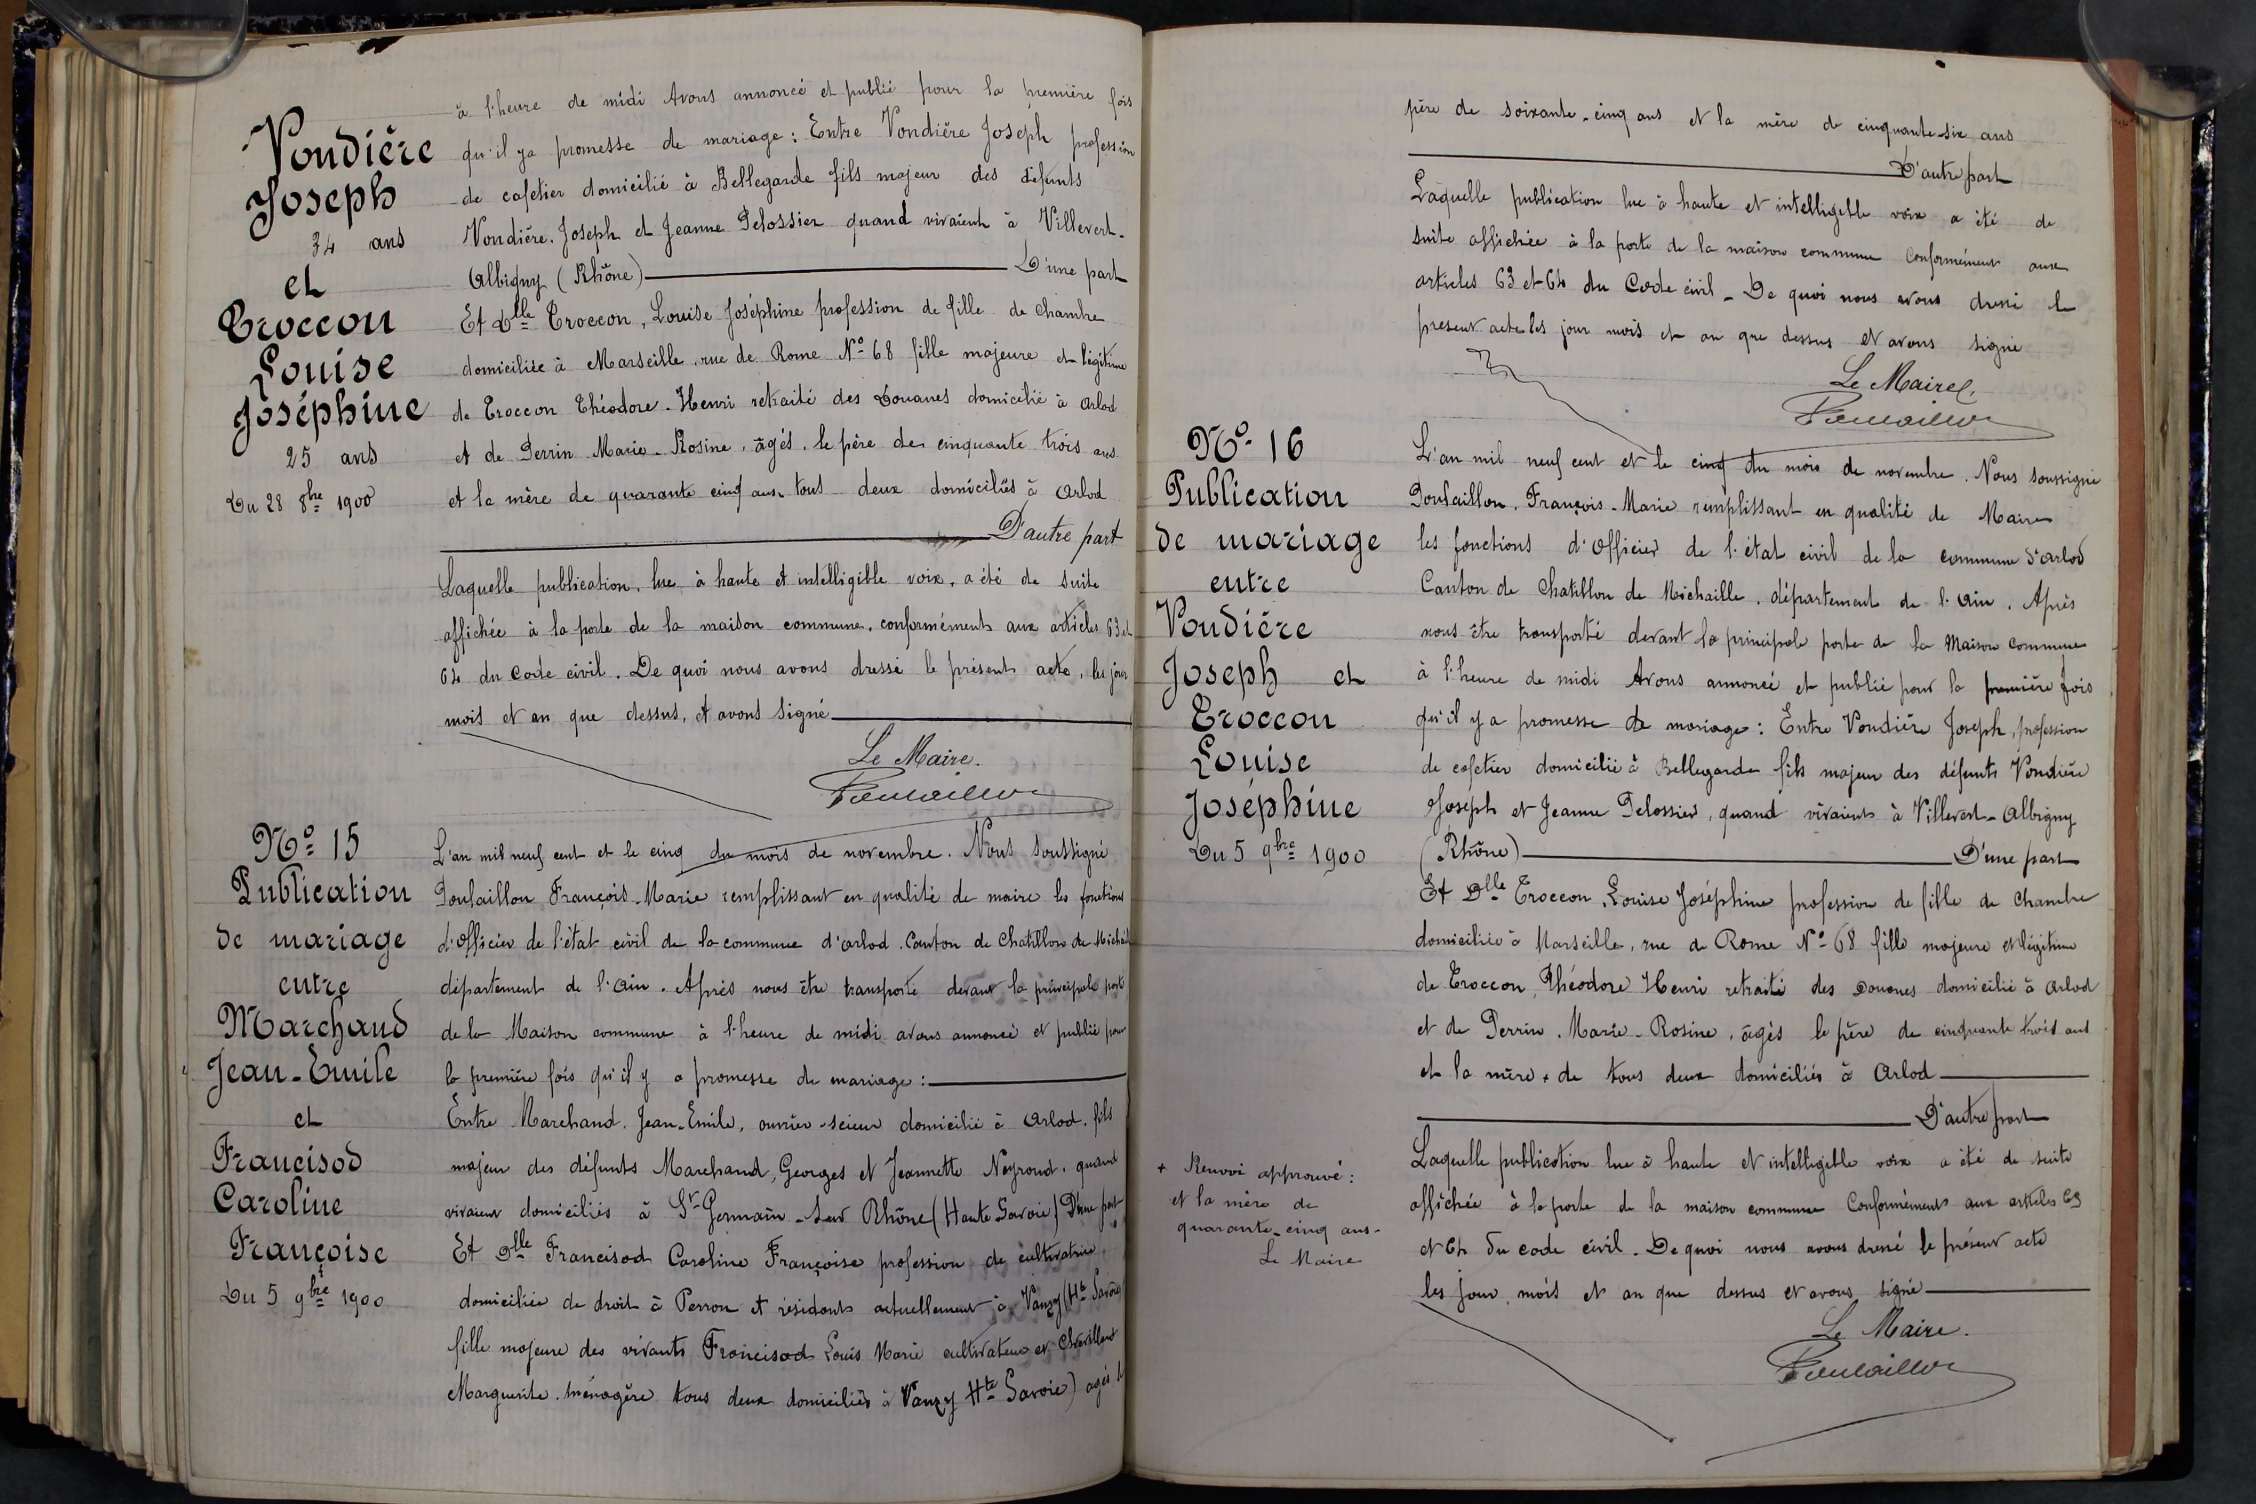 Vondière
Joseph
34 ans
et
Troccon
Louise
Joséphine
25 ans
Du 28 8bre 1900
à l'heure de midi Avons annoncé et publié pour la première fois
qu'il y a promesse de mariage : Entre Vondière Joseph profession
de cafetier domicilié à Bellegarde fils majeur des défunts
Vondière Joseph et Jeanne Pelossier quand vivaient à Villevert-
Albigny (Rhône) D'une part
Et Dlle Troccon, Louise Joséphine profession de fille de chambre
domiciliée à Marseille, rue de Rome No 68 fille majeure et légitime
de Troccon Théodore-Henri retraité des Douanes domicilié à Arlod
et de Perrin Marie-Rosine, âgés, le père de cinquante trois ans
et la mère de quarante cinq ans, tous deux domiciliés à Arlod
D'autre part
Laquelle publication, lue à haute et intelligible voix, a été de suite
affichée à la porte de la maison commune, conformément aux articles 63 et
64 du Code civil. De quoi nous avons dressé le présent acte, les jour
mois et an que dessus, et avons signé
Le Maire.
Poulaillon
No 15
Publication
de mariage
entre
Marchand
Jean-Emile
et
Francisod
Caroline
Françoise
Du 5 9bre 1900
L'an mil neuf cent et le cinq du mois de novembre. Nous soussigné
Poulaillon François-Marie remplissant en qualité de maire les fonctions
d'Officier de l'état civil de la commune d'Arlod. Canton de Chatillon de Michaille
département de l'Ain. Après nous être transporté devant la principale porte
de la Maison commune à l'heure de midi avons annoncé et publié pour
la première fois qu'il y a promesse de mariage :
Entre Marchand Jean-Emile, ouvrier-scieur domicilié à Arlod, fils
majeur des défunts Marchand, Georges et Jeannette Neyroud, quand
vivaient domiciliés à St Germain-sur Rhône (Haute Savoie) D'une part
Et Dlle Francisod Caroline Françoise profession de cultivatrice,
domiciliée de droit à Perron et résidant actuellement à Vanzy (Hte Savoie)
fille majeure des vivants Francisod Louis Marie cultivateur et
Marguerite ménagère tous deux domiciliés à Vanzy Hte Savoie) agés le
père de soixante-cinq ans et la mère de cinquante-six ans
D'autre part
Laquelle publication lue à haute et intelligible voix a été de
suite affichée à la porte de la maison commune conformément aux
articles 63 et 64 du Code civil - De quoi nous avons dressé le
présent acte les jour mois et an que dessus et avons signé
Le Maire
Poulaillon
No 16
Publication
de mariage
entre
Vondière
Joseph et
Troccon
Louise
Joséphine
Du 5 9bre 1900
L'an mil neuf cent et le cinq du mois de novembre. Nous soussigné
Poulaillon, François-Marie remplissant en qualité de Maire
les fonctions d'Officier de l'état civil de la commune d'Arlod
Canton de Chatillon de Michaille, département de l'Ain. Après
nous être transporté devant la principale porte de la Maison Commune
à l'heure de midi Avons annoncé et publié pour la première fois
qu'il y a promesse de mariage : Entre Vondière Joseph, profession
de cafetier domicilié à Bellegarde fils majeur des défunts Vondière
Joseph et Jeanne Pelossier, quand vivaient à Villevert-Albigny
(Rhône) D'une part
Et Dlle Troccon, Louise Joséphine profession de fille de Chambre
domiciliée à Marseille, rue de Rome No 68 fille majeure et légitime
de Troccon Théodore Henri retraité des Douanes domicilié à Arlod
et de Perrin. Marie-Rosine, âgés le père de cinquante trois ans
et la mère + de tous deux domiciliés à Arlod
D'autre part
+ Renvoi approuvé :
et la mère de
quarante-cinq ans-
Le Maire
Laquelle publication lue à haute et intelligible voix a été de suite
affichée à la porte de la maison commune Conformément aux articles 63
et 64 du code civil. De quoi nous avons dressé le présent acte
les jour, mois et an que dessus et avons signé
Le Maire.
Poulaillon